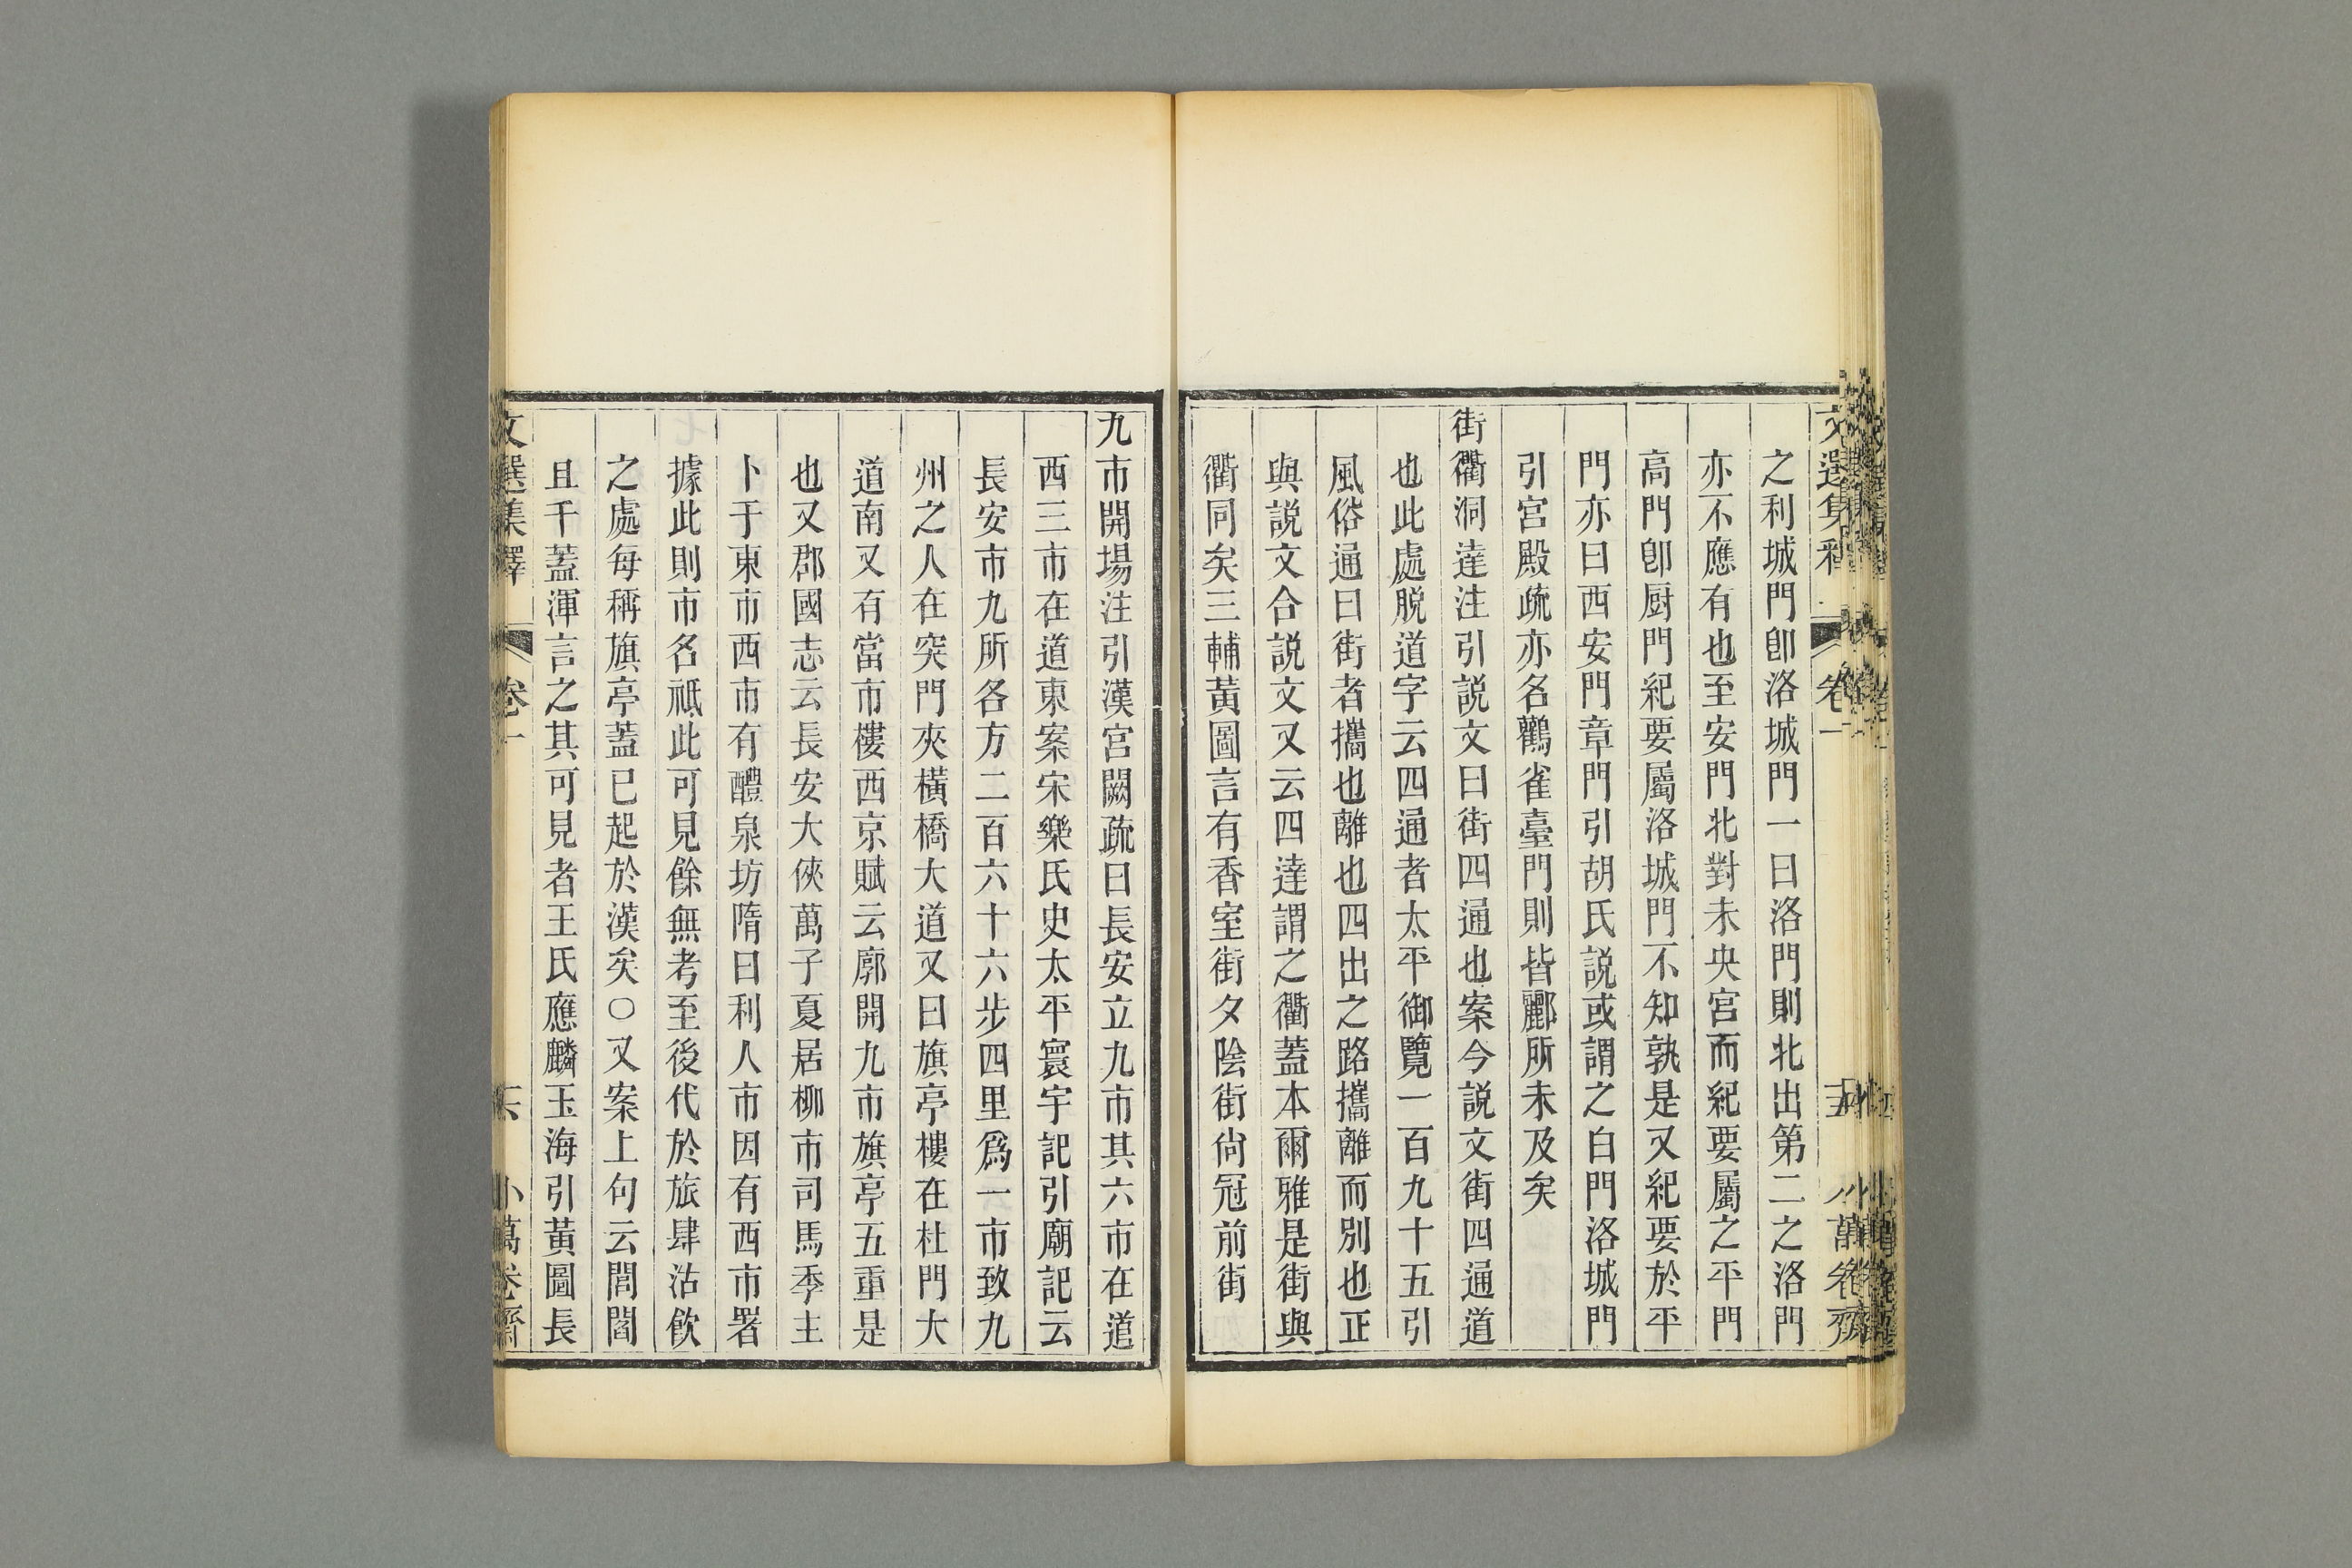 文選集釋 卷一
之利城門卽洛城門一曰洛門則北出第二之洛門
亦不應有也至安門北對未央宮而紀要屬之平門
高門卽厨門紀要屬洛城門不知孰是又紀要於平
門亦曰西安門章門引胡氏説或謂之白門洛城門
引宮殿疏亦名鸛雀臺門則皆酈所未及矣
街衢洞達注引説文曰街四通也案今説文街四通道
也此處脱道字云四通者太平御覽一百九十五引
風俗通曰街者攜也離也四出之路攜離而別也正
與説文合説文又云四達謂之衢蓋本爾雅是街與
衢同矣三輔黃圖言有香室街夕陰街尙冠前街
九市開場注引漢宮闕疏曰長安立九市其六市在道
西三市在道東案宋樂氏史太平寰宇記引廟記云
長安市九所各方二百六十六步四里爲一市致九
州之人在突門夾橫橋大道又曰旗亭樓在杜門大
道南又有當市樓西京賦云廓開九市旗亭五重是
也又郡國志云長安大俠萬子夏居柳市司馬季主
卜于東市西市有醴泉坊隋曰利人市因有西市署
據此則市名祗此可見餘無考至後代於旅肆沽飮
之處每稱旗亭蓋已起於漢矣○又案上句云閭閻
且千蓋渾言之其可見者王氏應麟玉海引黃圖長
文選集釋 卷一 小萬卷齋